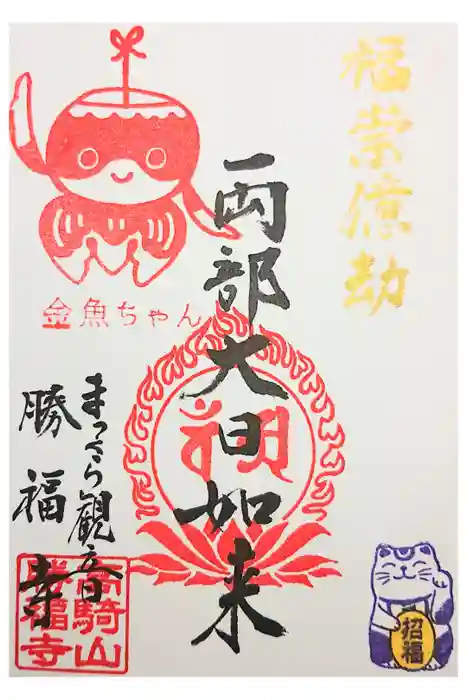 福崇億劫
両部大日如来
金魚ちゃん
まっくら観音
勝福寺
高騎山
勝福寺
招福